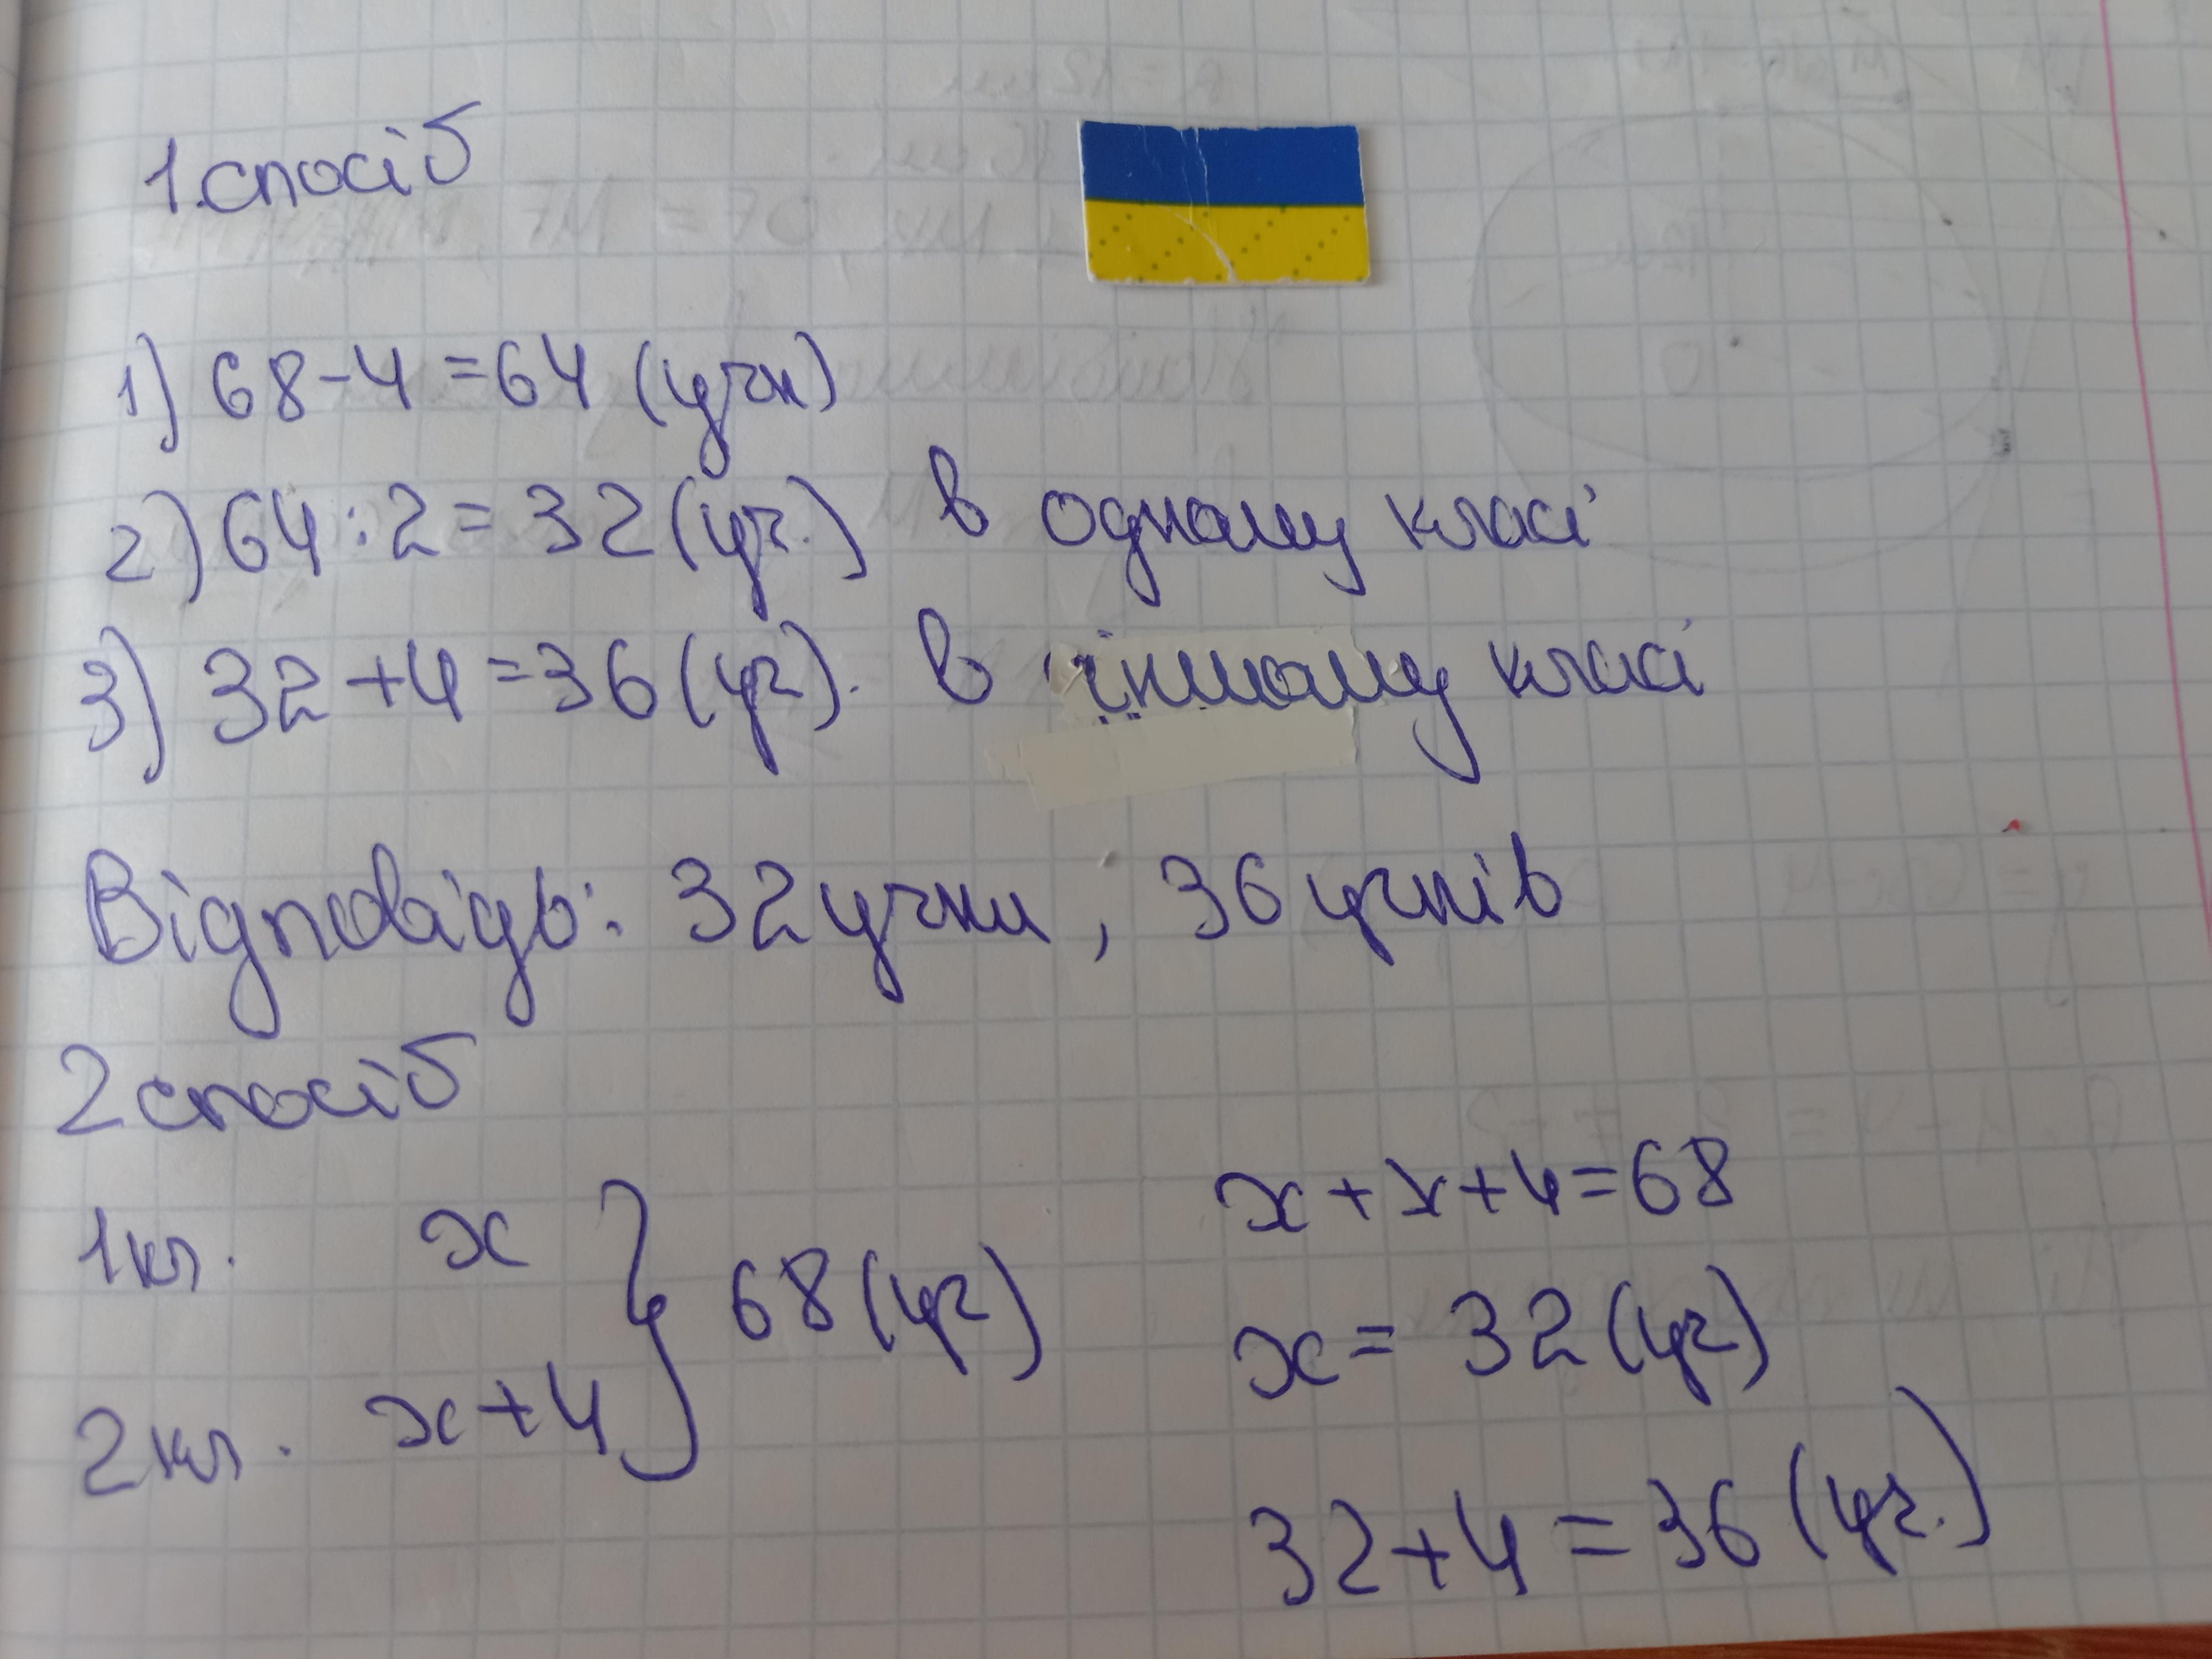 1.спосіб
1) 68-4=64 (учн)
2) 64:2=32(уч.) в одному класі
3) 32+4=36(уч). в іншому класі
Відповідь: 32 учни, 36 учнів
2 спосіб
1кл. x
2кл. x+4
68(уч)
x+x+4=68
x= 32(уч)
32+4=36(уч.)